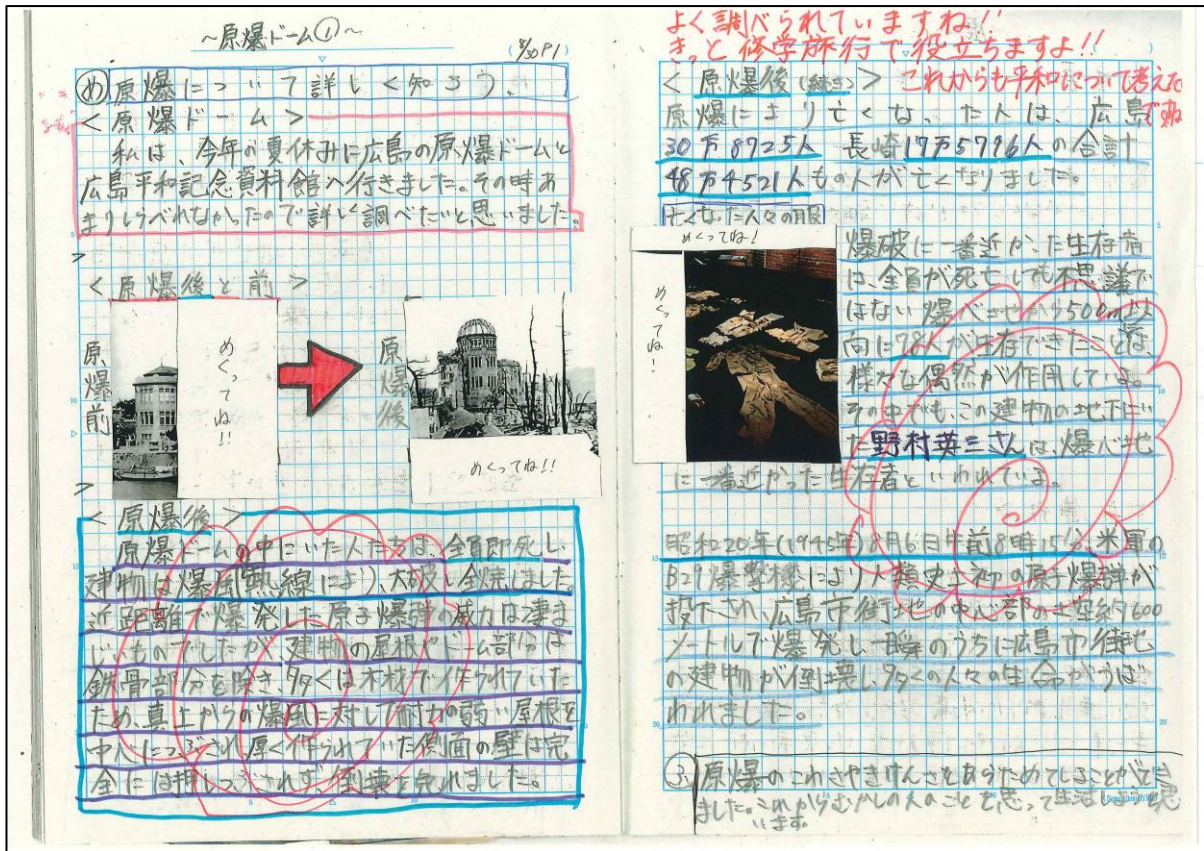 ~原爆ドーム①~
8/30 P1
め 原爆について詳しく知ろう。
<原爆ドーム>
私は、今年の夏休みに広島の原爆ドームと
広島平和記念資料館へ行きました。その時あ
まりしらべれなかったので詳しく調べたいと思いました。
<原爆後と前>
原爆前
めくってね!!
原爆後
めくってね!!
<原爆後>
原爆ドームの中にいた人たちは、全員即死し、
建物は爆風(熱線により)、大破し全焼しました。
近距離で爆発した原子爆弾の威力は凄ま
じいものでしたが、建物の屋根やドーム部分は
鉄骨部分を除き、多くは木材で作られていた
ため、真上からの爆風に対して耐力の弱い屋根を
中心につぶされ厚く作られていた側面の壁は完
全には押しつぶされず、倒壊を免れました。
よく調べられていますね!!
きっと修学旅行で役立ちますよ!!
これからも平和について考えたいですね
<原爆後(続き)>
原爆により亡くなった人は、広島
30万8725人 長崎17万5796人の合計
48万4521人もの人が亡くなりました。
亡くなった人々の服
めくってね!
めくってね!
爆破に一番近かった生存者
は、全員が死亡しても不思議で
はない爆
から500m以
内に78人が生存できたことは、
様々な偶然が作用している。
その中でも、この建物の地下にい
た野村英三さんは、爆心地
に一番近かった生存者といわれている。
昭和20年(1945年)8月6日午前8時15分、米軍の
B29爆撃機により人類史上初の原子爆弾が
投下され、広島市街地の中心部の上空約600
メートルで爆発し一瞬のうちに広島市街地
の建物が倒壊し、多くの人々の生命がうば
われました。
ふ 原爆のこわさやきけんさをあらためてしることができ
ました。これからむかしの人のことを思って生活しようと思
います。